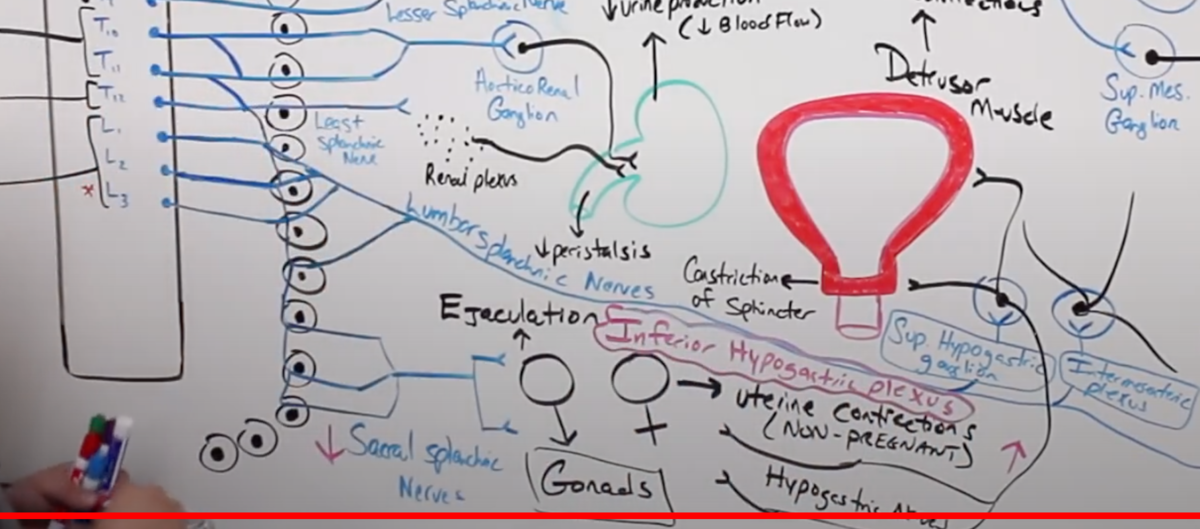 Lesser Splanchnic Nerve
↓urine production
(↓ Blood Flow)
T10
T11
T12
L1
L2
* L3
AorticoRenal
Ganglion
Least
Splanchnic
Nerve
Renal plexus
↓peristalsis
Lumbar Splanchnic Nerves
Detrusor
Muscle
Sup. Mes.
Ganglion
Constriction
of Sphincter
Sup. Hypogastric
ganglion
Intermesenteric
plexus
Ejaculation
Inferior Hypogastric plexus
uterine contractions
(NON-PREGNANT)
↓ Sacral splanchnic
Nerves
Gonads
Hypogastric